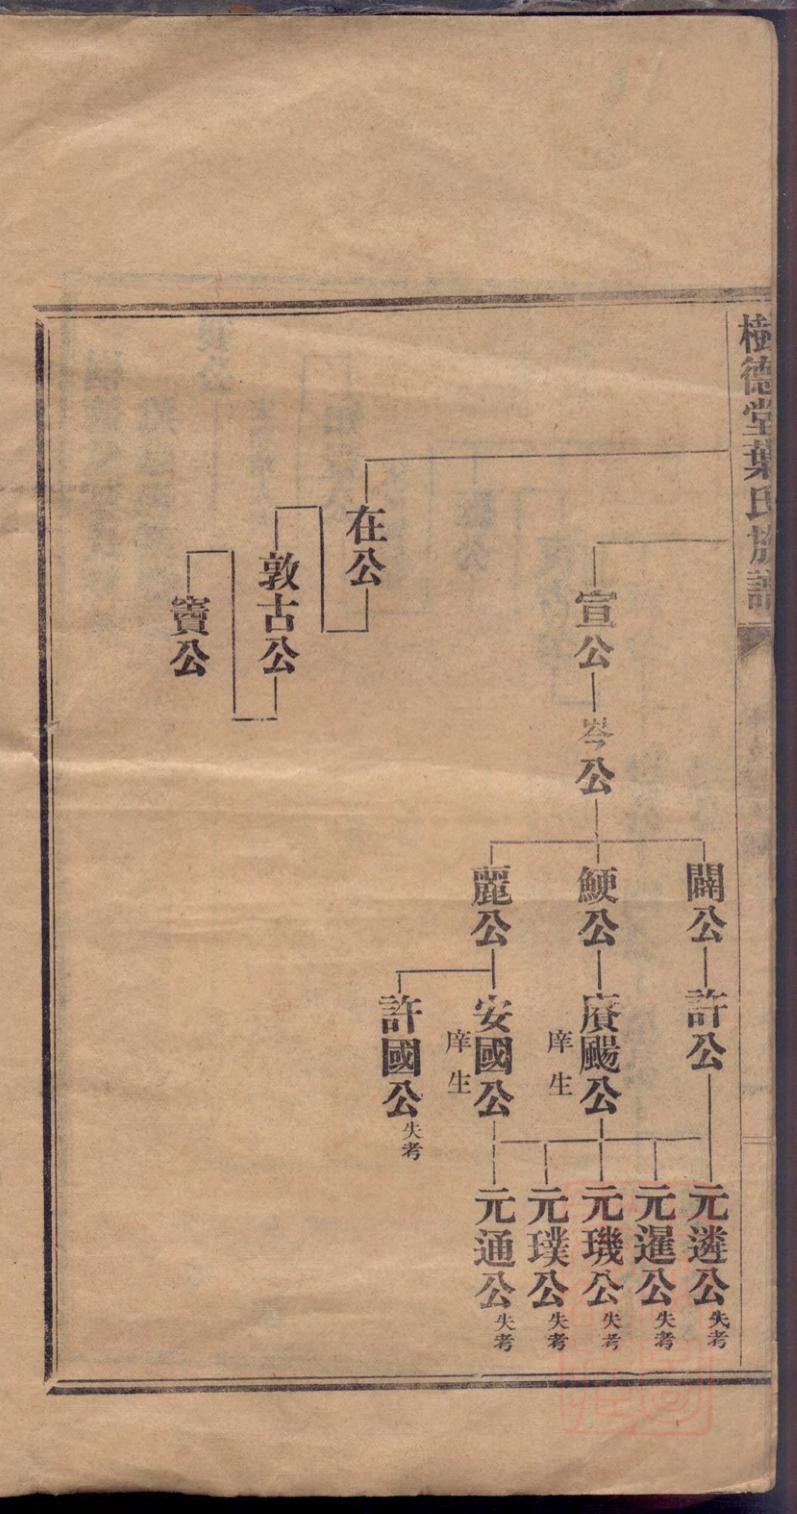 樹德堂葉氏族譜
宣公
岑公
闢公
許公
元遴公失考
鯁公
賡颺公
庠生
元暹公失考
元璣公失考
元璞公失考
麗公
安國公
庠生
元通公失考
許國公失考
在公
敦古公
賨公